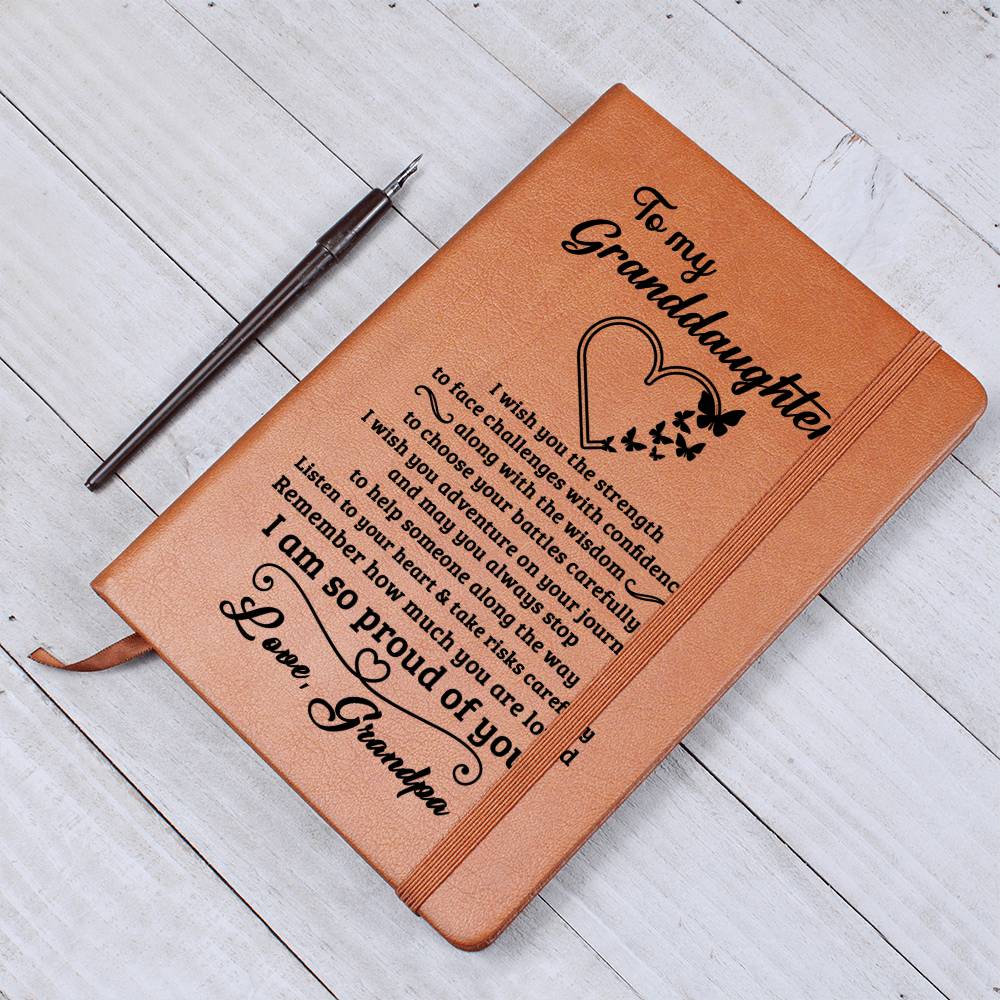 To my
Granddaughter
I wish you the strength
to face challenges with confidenc
along with the wisdom
to choose your battles carefully
I wish you adventure on your journ
and may you always stop
to help someone along the way
Listen to your heart & take risks caref y
Remember how much you are lo d
I am so proud of you
Love, Grandpa